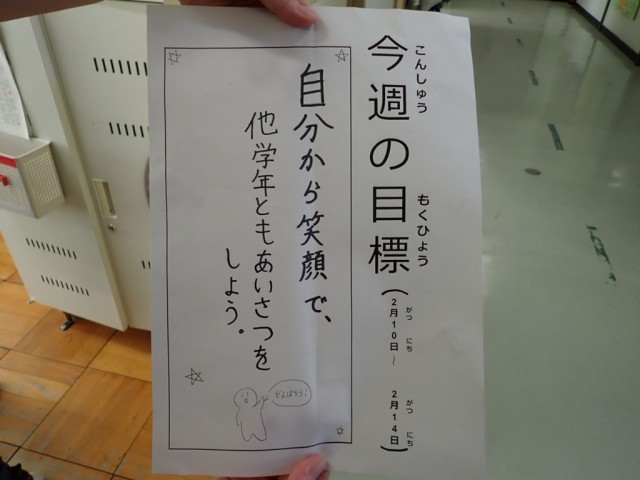 こんしゅう もくひょう
今週の目標
がつ にち がつ にち
(2月10日～ 2月14日)
自分から笑顔で、
他学年ともあいさつを
しよう。
がんばろう!